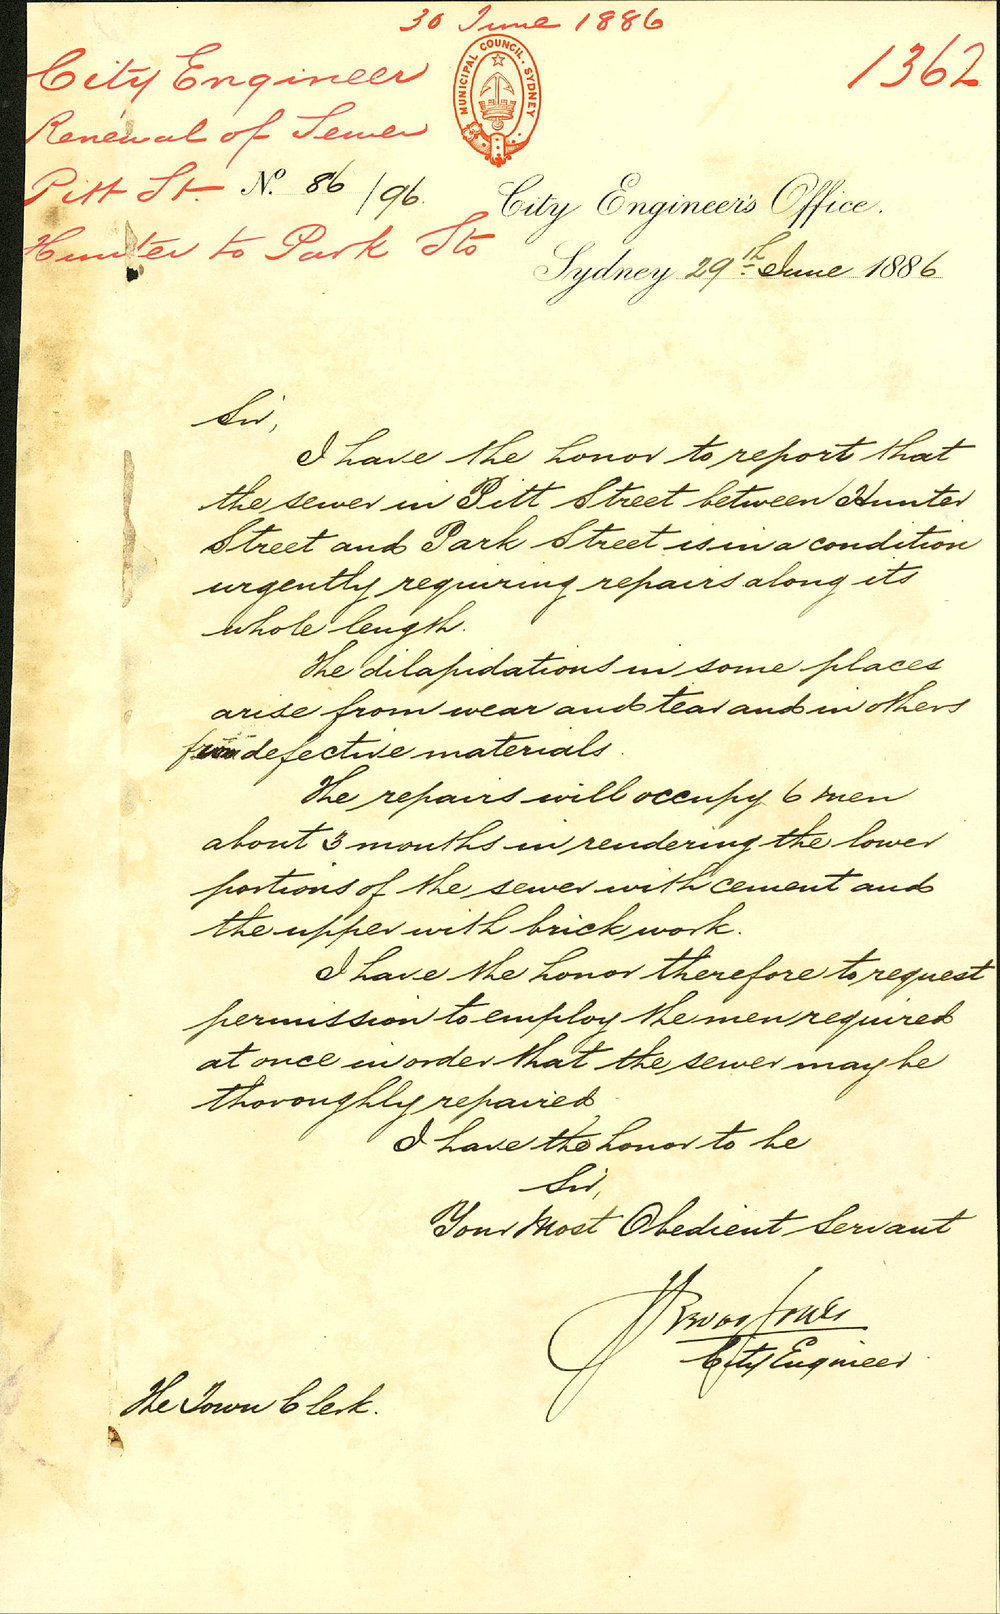 30 June 1886
1362
City Engineer
Renewal of Sewer
Pitt St.
Hunter to Park Sts
MUNICIPAL COUNCIL. SYDNEY
No. 86/96.
City Engineer's Office.
Sydney 29th June 1886
Sir,
I have the honor to report that
the sewer in Pitt Street between Hunter
Street and Park Street is in a condition
urgently requiring repairs along its
whole length.
The dilapidations in some places
arise from wear and tear and in others
from defective materials.
The repairs will occupy 6 men
about 3 months in rendering the lower
portions of the sewer with cement and
the upper with brick work.
I have the honor therefore to request
permission to employ the men required
at once in order that the sewer may be
thoroughly repaired
I have the honor to be
Sir,
Your Most Obedient Servant
City Engineer
The Town Clerk.